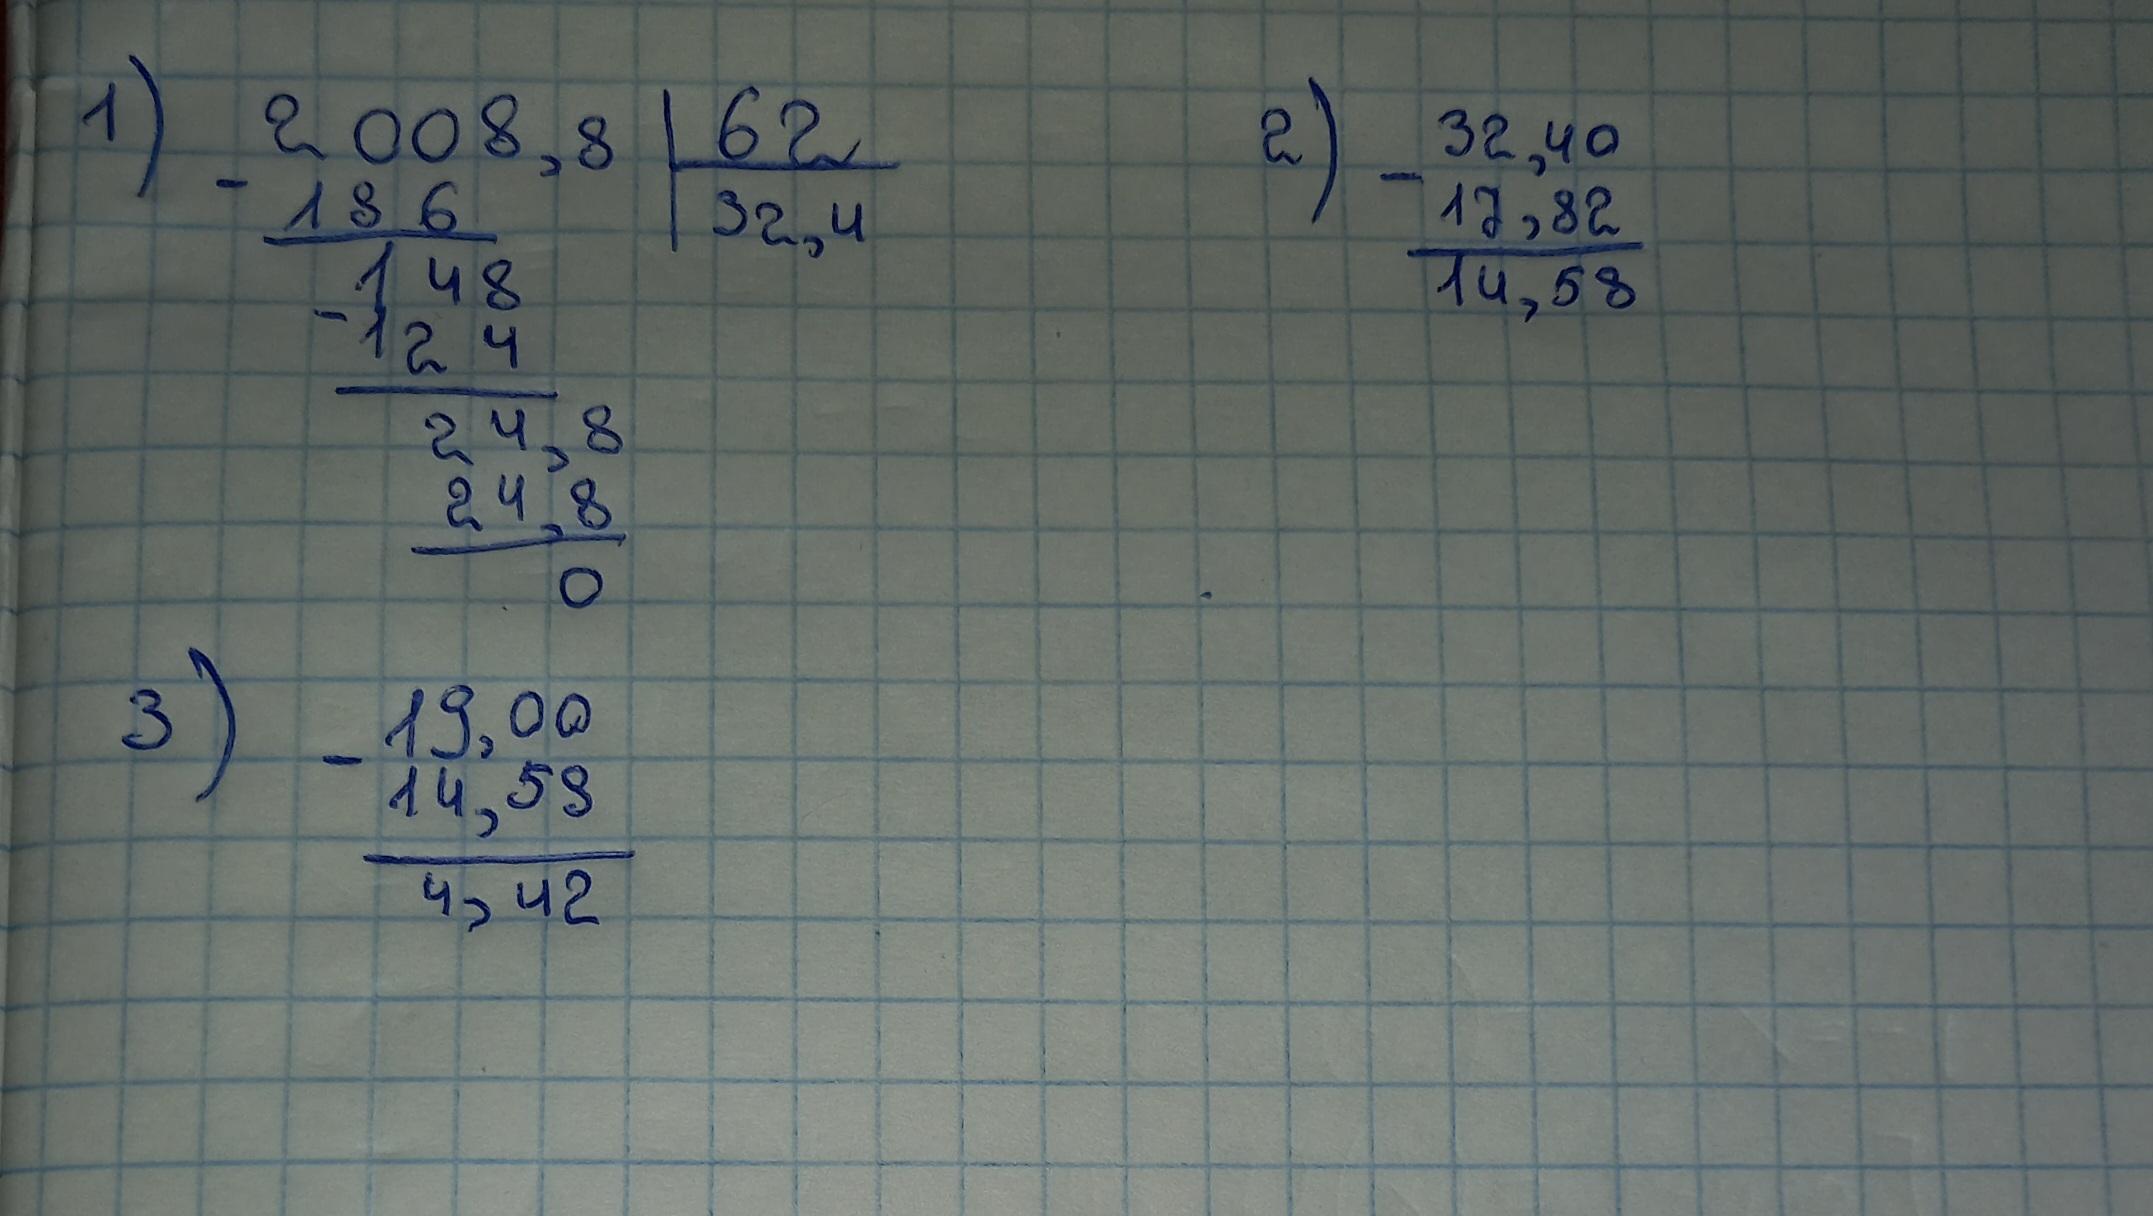 1) - 2008,8 | 62
186 | 32,4
- 148
124
24,8
24,8
0
2) - 32,40
17,82
14,58
3) - 19,00
14,58
4,42